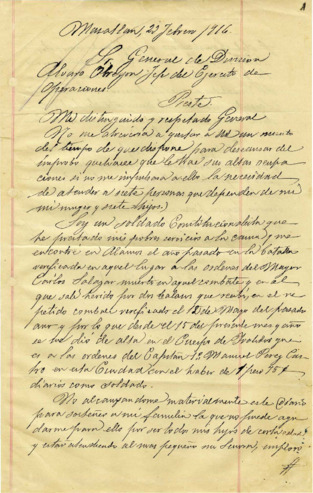 Mazatlan, 23 Febrero 1916.
Sr. General de Division
Alvaro Obregon Jefe del Ejercito de
Operaciones
Pte.
Mi distinguido y respetado General
No me atreveria a quitar a Ud un minuto
del tiempo de que dispone para descansar del
improbo quehacer que le dan sus altas ocupa
ciones si no me impulsara a ello la necesidad
de atender a siete personas que dependen de mi
mi mujer y siete hijos.
Soy un soldado Constitucionalista que
he prestado mis pobres servicios a la causa y me
encontré en Alamos el año pasado en la batalla
verificada en aquel lugar a las ordenes del Mayor
Carlos Salazar muerto en aquel combate y en al
que salí herido por dos balazos que recibí en el re
petido combate verificado el 12 de Mayo del pasado
año y por lo que desde el 15 del presente mes y año
se me dió de alta en el Cuerpo de Inválidos que
es a las ordenes del Capitán 1o. Manuel Perez Cas
tro en esta Ciudad con el haber de 1 peso
diarios como soldado.
No alcanzandome materialmente este diario
para sostener a mi familia la que no puede ayu
darme para ello por ser todo mis hijos de corta edad
y estar atendiendo al mas pequeño mi Señora,